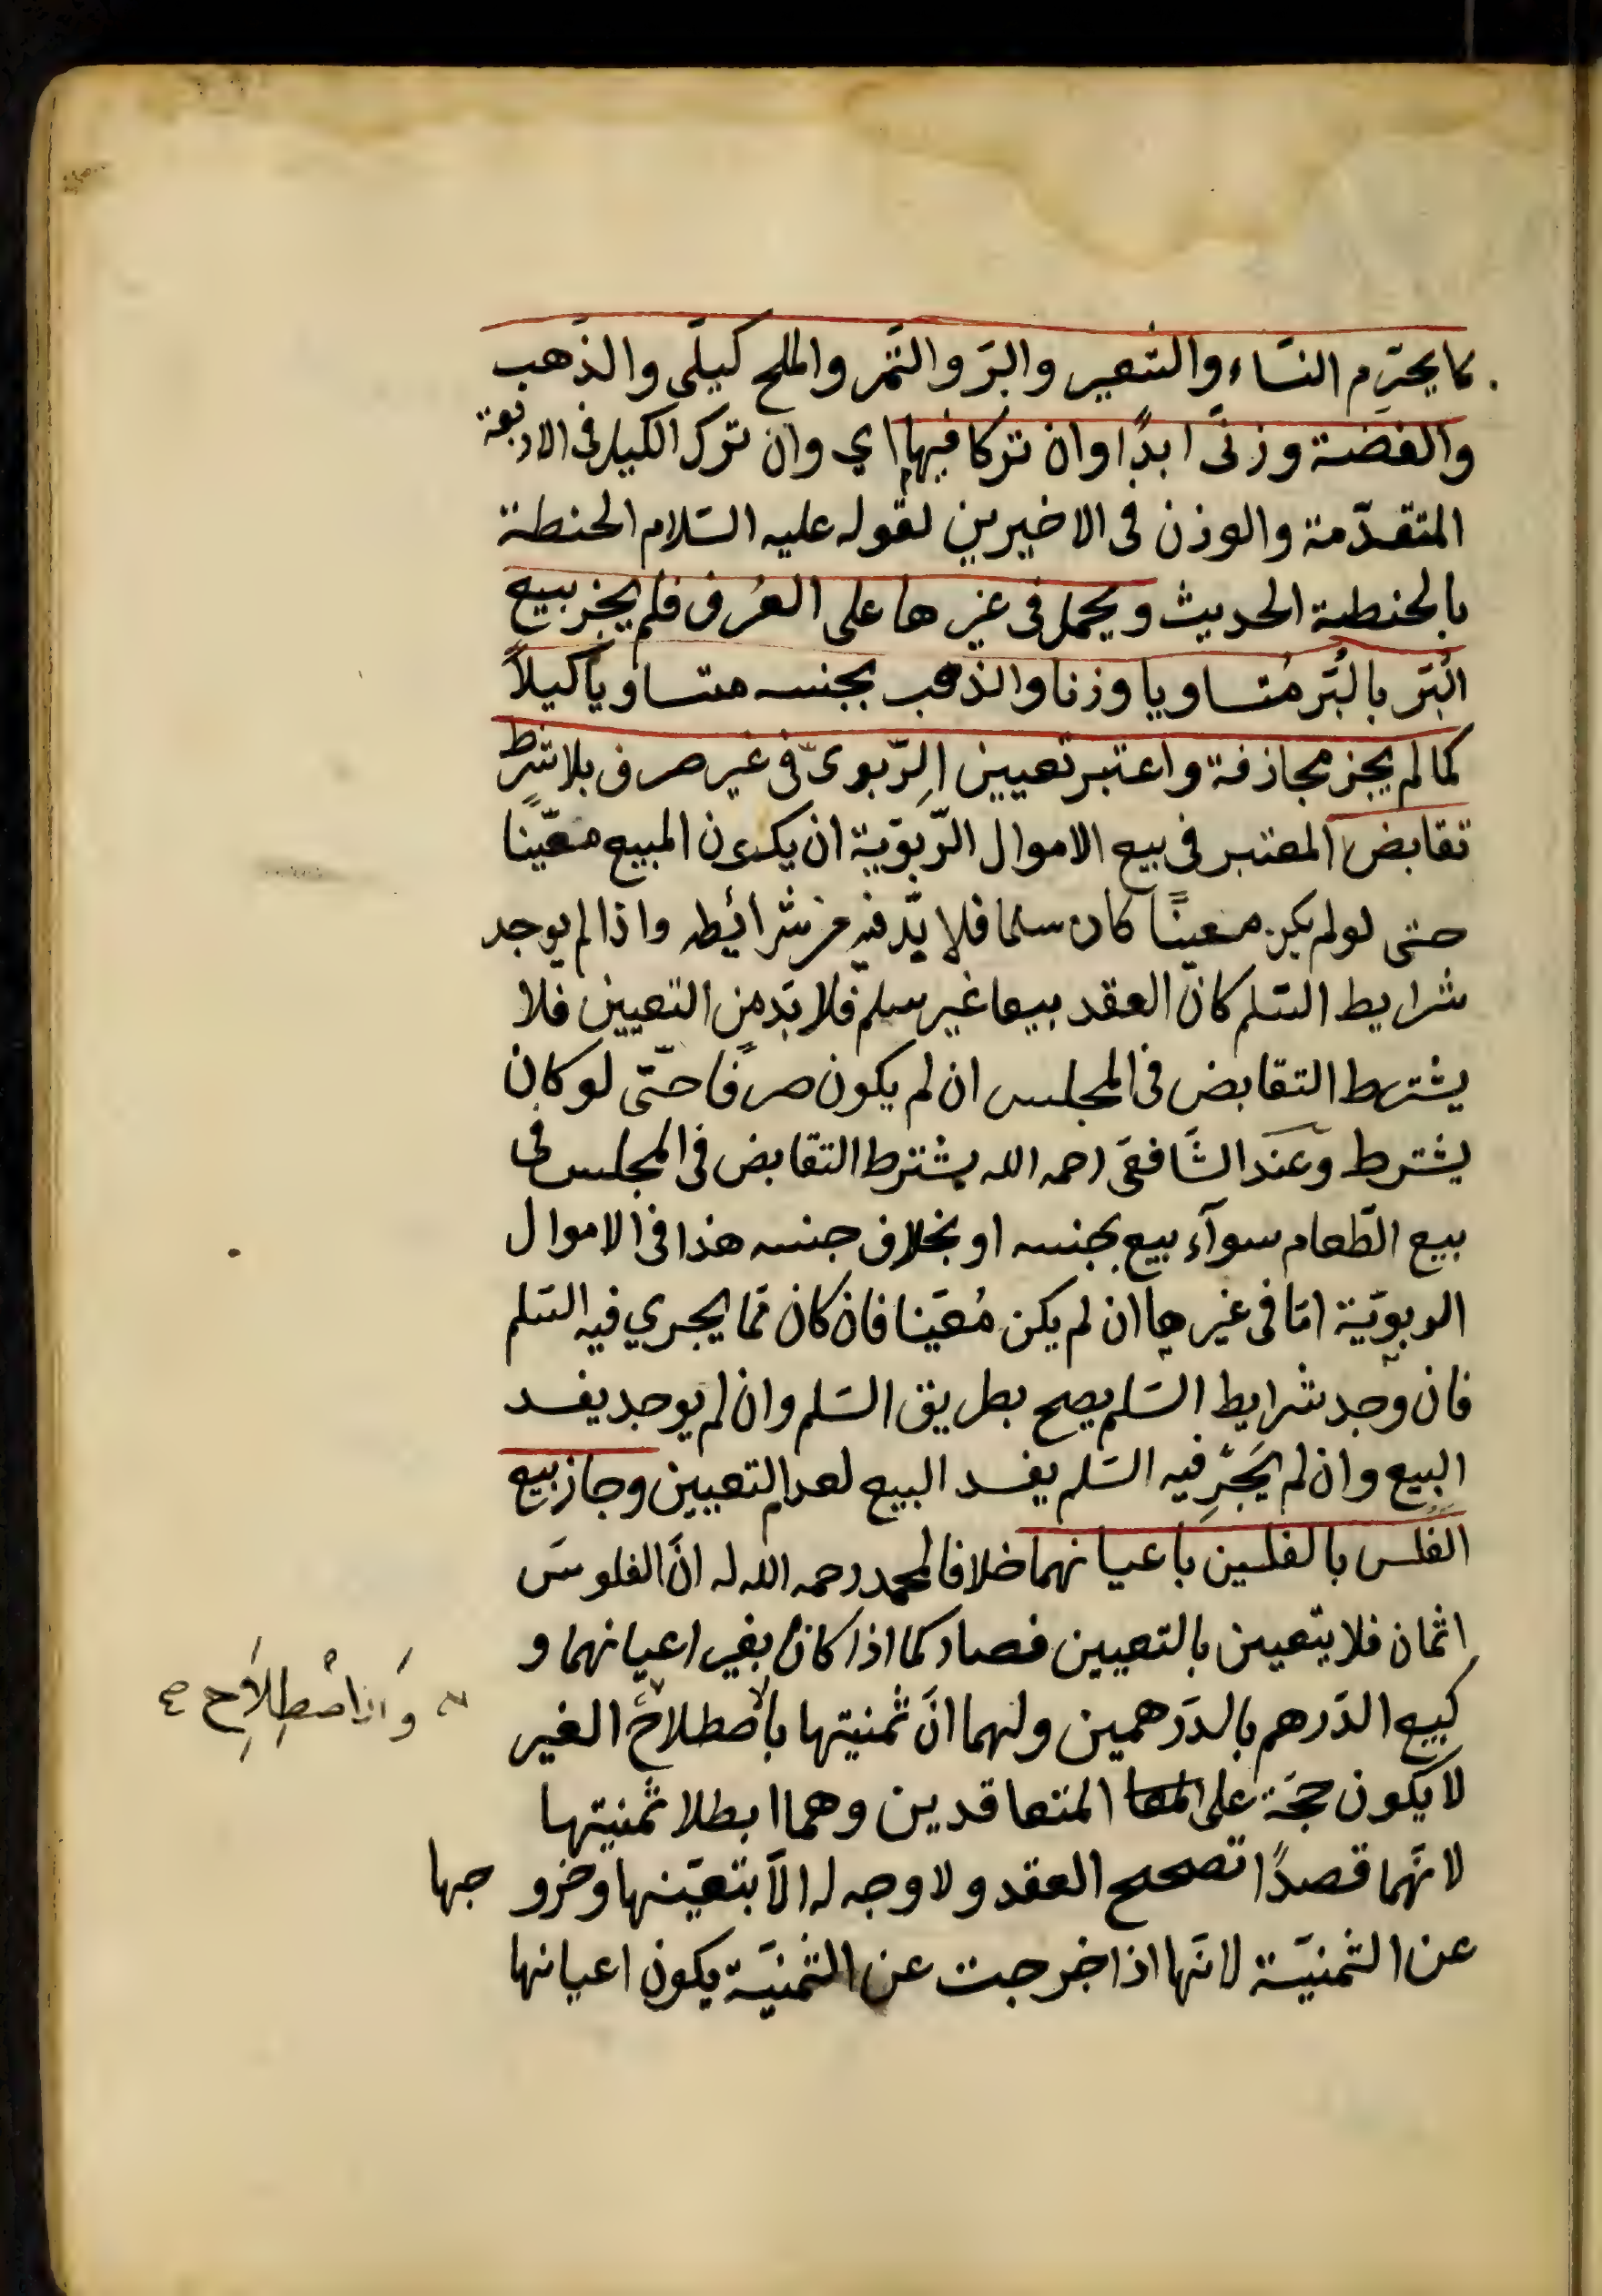 كما يحرّم النسَاء والشعير والبرّ والتَمر والملح كيلَى والذَهب
والفضة وزنَى ابدًا وان تركا فيها اي وان ترك الكيل فى الاربعة
المتقدّمة والوزن فى الاخيرين لقوله عليه السَلام الحنطة
بالحنطة الحديث ويحمل فى غيرها على العُرف فلم يجز بيع
البُرّ بالبُرّ مُتساويا وزنا والذهب بجنسه متساويا كيلاً
كما لم يجز مجازفة واعتبر تعيين الرّبوىّ فى غير صرف بلا شرط
تقابض المعتبر فى بيع الاموال الرّبويّة ان يكون المبيع معيّنا
حتى لو لم يكن معينًا كان سلما فلا بدّ فيه من شرائيطه واذا لم يوجد
شرايط السَلم كان العقد بيعا غير سلم فلا بدّ من التعيين فلا
يشترط التقابض فى المجلس ان لم يكون صرفًا حتّى لو كان
يشترط وعند الشَافعىَ رحمه الله يشترط التقابض فى المجلس فى
بيع الطّعام سوآء بيع بجنسه او بخلاف جنسه هذا فى الاموال
الربويّة امّا فى غيرها ان لم يكن مُعَينا فان كان ممّا يجري فيه السَلم
فان وجد شرايط السَلم يصح بطريق السَلم وان لم يوجد يفسد
البيع وان لم يَجْرِ فيه السَلم يفسد البيع لعدم التعيين وجاز بيع
الفَلس بالفلسين باعيانهما خلافا لمحمد رحمه الله له انَّ الفلوسَ
اثمان فلا يتعين بالتعيين فصار كما اذا كان بغير اعيانهما و
كبيع الدَرهم بالدَرهمين ولهما انَّ ثمنيتها باصطلاح الغير
وَاِنَّ اصْطِلَاحِ صح
لا يكون حجّة على المتعاقدين وهما ابطلا ثمنيتها
لانَهما قصدًا تصحيح العقد ولا وجه له الاّ بتعيّنها وخروجها
عن الثمنيَة لانَها اذا خرجت عن الثمنيَة يكون اعيانها